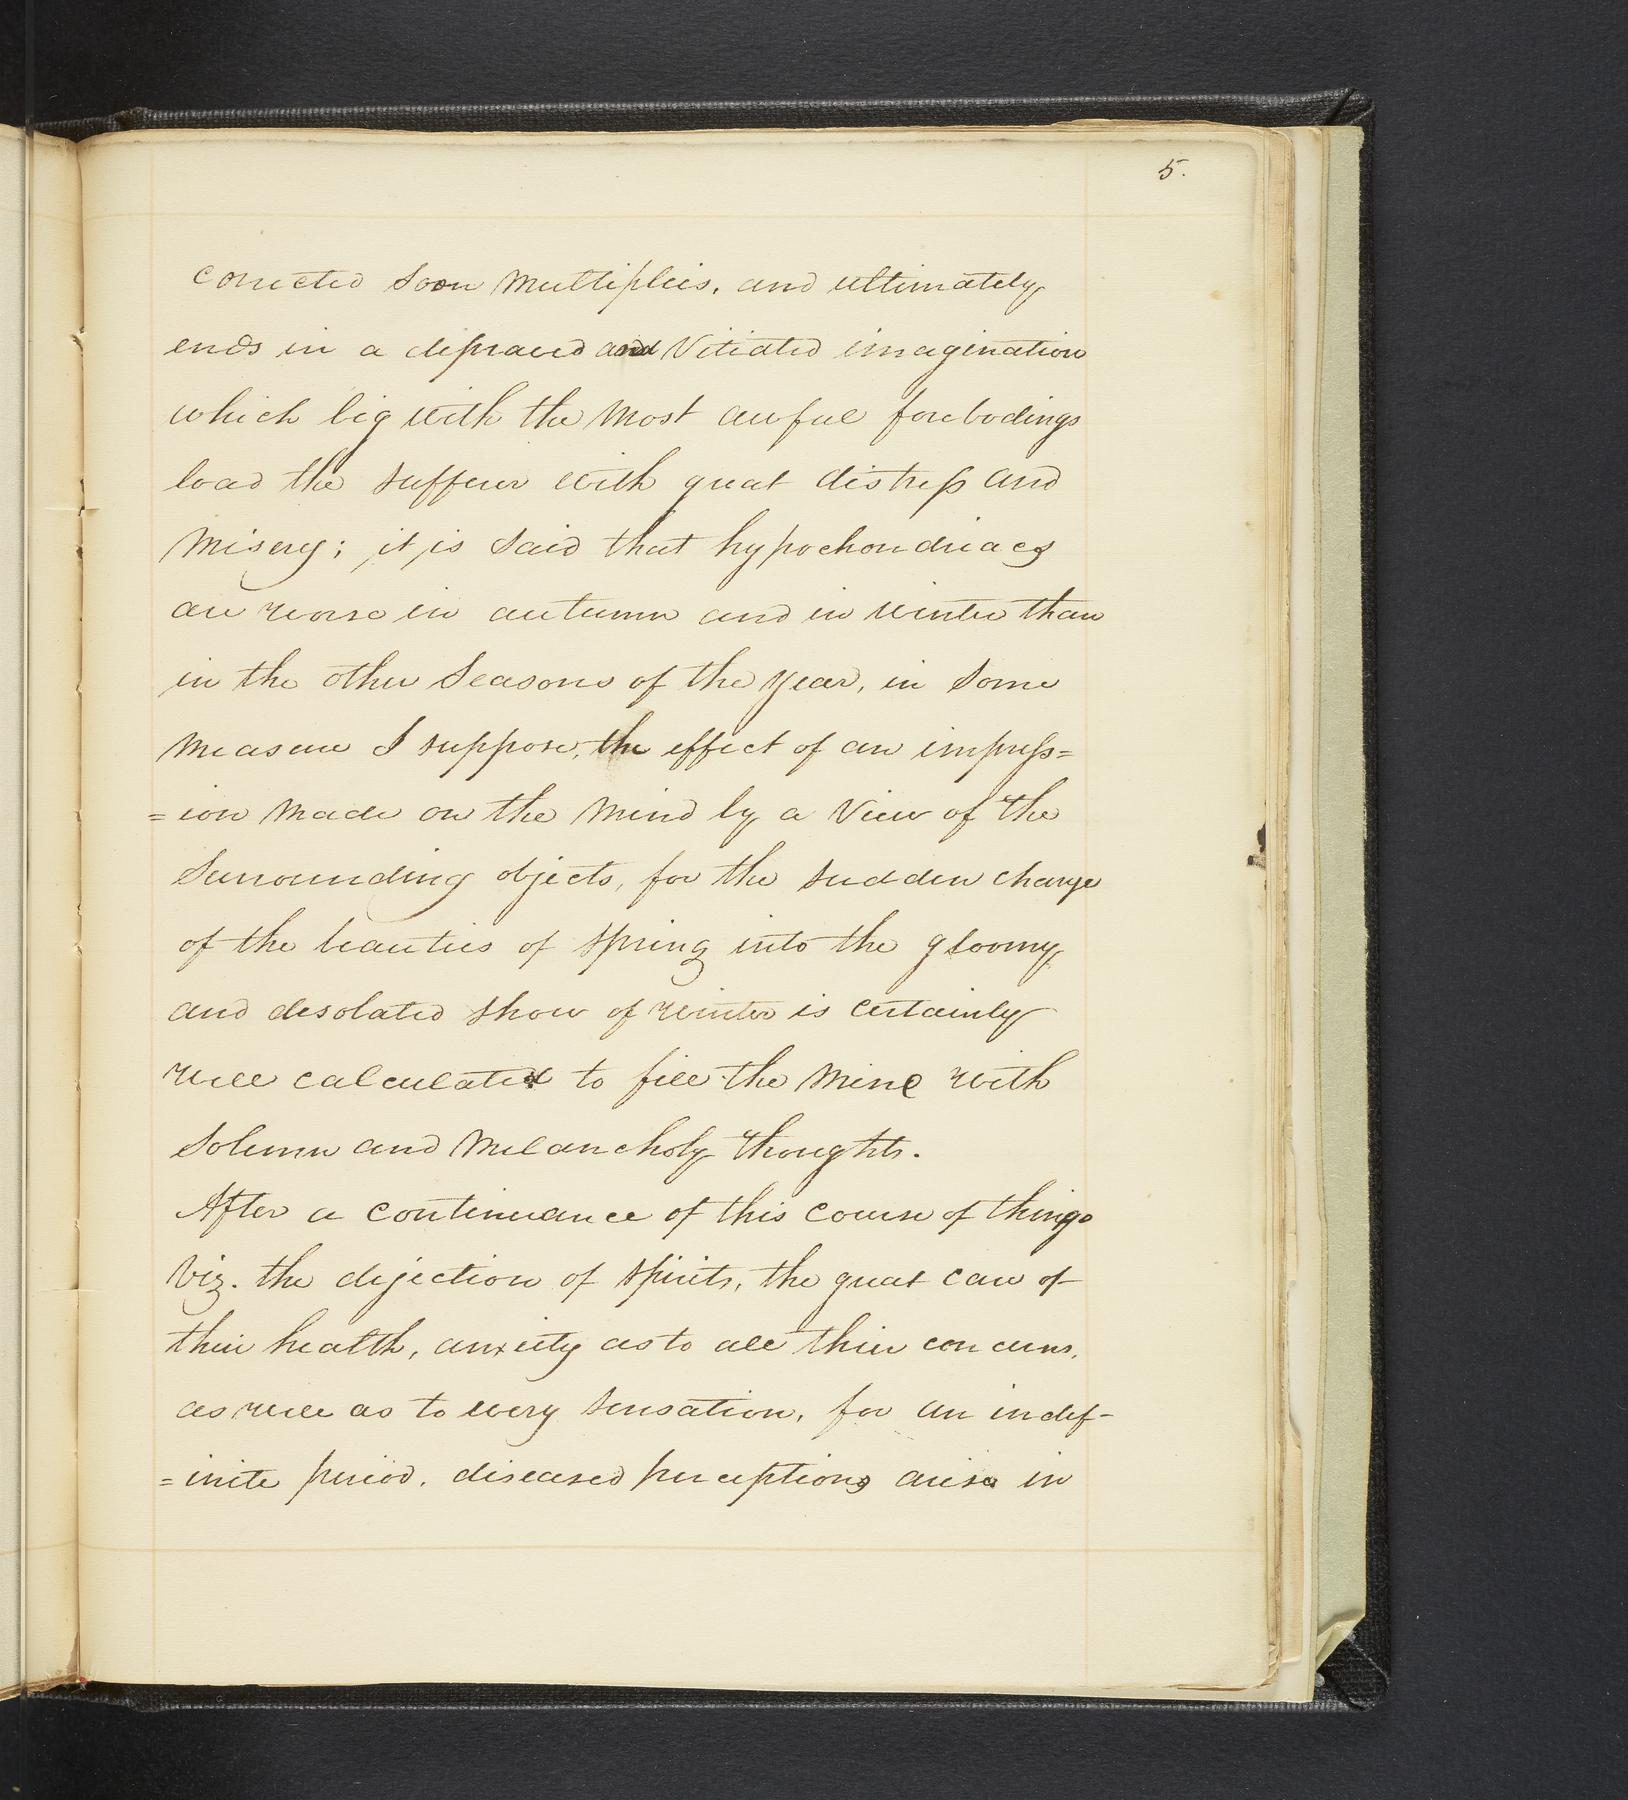 5.
corrected soon multiplies, and ultimately
ends in a depraved and Vitiated imagination
which big with the most awful forebodings
load the sufferer with great distress and
misery; it is said that hypochondriacs
are worse in autumn and in winter than
in the other Seasons of the year, in some
measure I suppose, the effect of an impress=
=ion made on the mind by a view of the
surrounding objects, for the sudden change
of the beauties of spring into the gloomy
and desolated show of winter is certainly
well calculated to fill the mind with
solemn and melancholy thoughts.
After a continuance of this course of things
Viz. the dejection of spirits, the great care of
their health, anxiety as to all their concerns,
as well as to every sensation, for an indef-
=inite period, diseased perceptions arise in